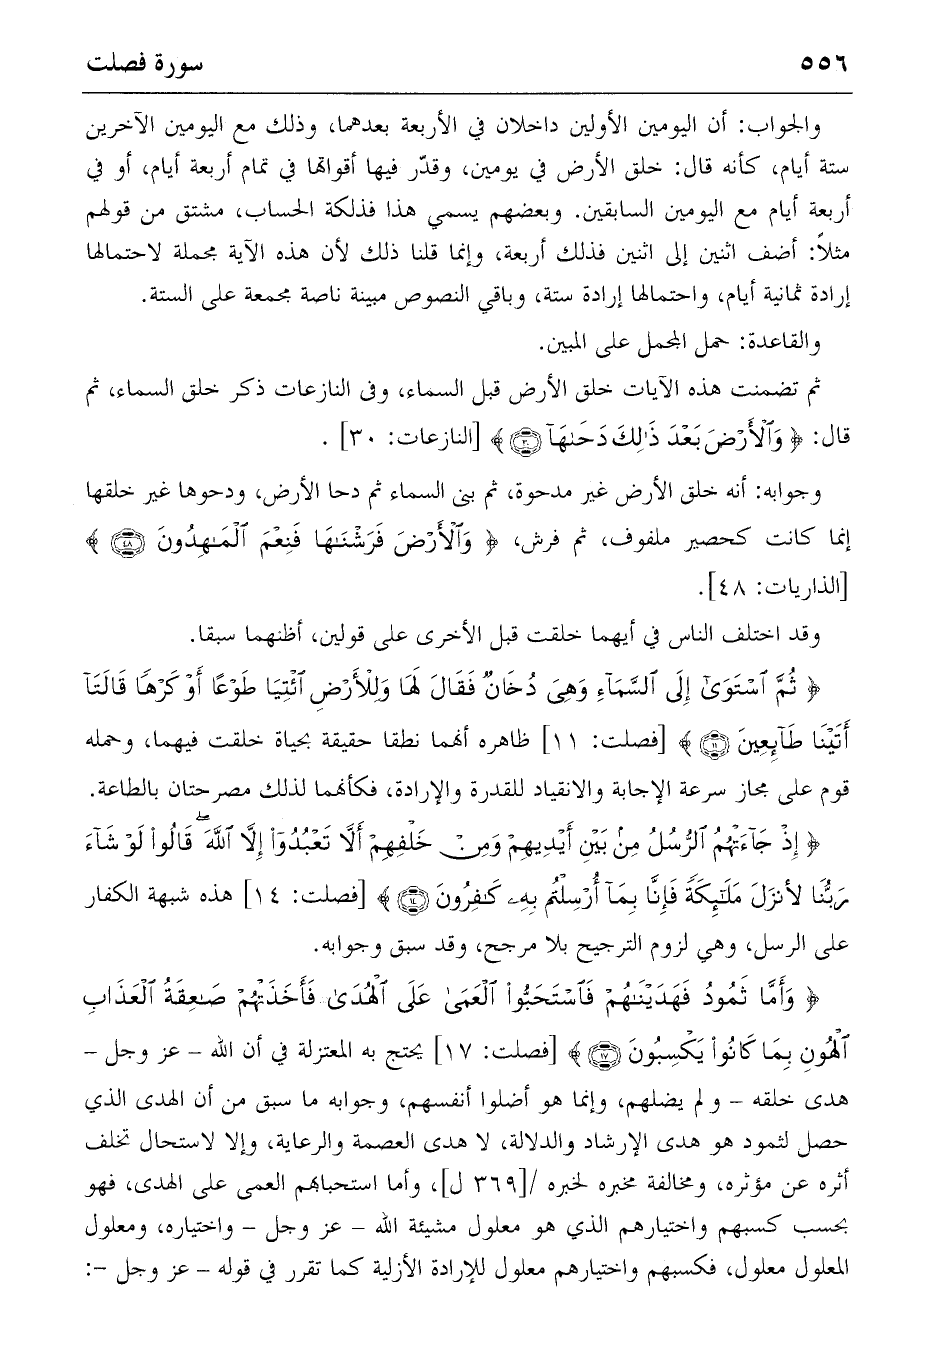 ٥٥٦ سورة فصلت
والجواب: أن اليومين الأولين داخلان في الأربعة بعدهما، وذلك مع اليومين الآخرين
ستة أيام، كأنه قال: خلق الأرض في يومين، وقدّر فيها أقواتها في تمام أربعة أيام، أو في
أربعة أيام مع اليومين السابقين. وبعضهم يسمي هذا فذلكة الحساب، مشتق من قولهم
مثلاً: أضف اثنين إلى اثنين فذلك أربعة، وإنما قلنا ذلك لأن هذه الآية مجملة لاحتمالها
إرادة ثمانية أيام، واحتمالها إرادة ستة، وباقي النصوص مبينة ناصة مجمعة على الستة.
والقاعدة: حمل المجمل على المبين.
ثم تضمنت هذه الآيات خلق الأرض قبل السماء، وفى النازعات ذكر خلق السماء، ثم
قال: ﴿ وَٱلْأَرْضَ بَعْدَ ذَٰلِكَ دَحَىٰهَآ ۝٣٠ ﴾ [النازعات: ٣٠] .
وجوابه: أنه خلق الأرض غير مدحوة، ثم بنى السماء ثم دحا الأرض، ودحوها غير خلقها
إنما كانت كحصير ملفوف، ثم فرش، ﴿ وَٱلْأَرْضَ فَرَشْنَـٰهَا فَنِعْمَ ٱلْمَـٰهِدُونَ ۝٤٨ ﴾
[الذاريات: ٤٨].
وقد اختلف الناس في أيهما خلقت قبل الأخرى على قولين، أظنهما سبقا.
﴿ ثُمَّ ٱسْتَوَىٰٓ إِلَى ٱلسَّمَآءِ وَهِىَ دُخَانٌ فَقَالَ لَهَا وَلِلْأَرْضِ ٱئْتِيَا طَوْعًا أَوْ كَرْهًا قَالَتَآ
أَتَيْنَا طَآئِعِينَ ۝١١ ﴾ [فصلت: ١١] ظاهره أنهما نطقا حقيقة بحياة خلقت فيهما، وحمله
قوم على مجاز سرعة الإجابة والانقياد للقدرة والإرادة، فكأنهما لذلك مصرحتان بالطاعة.
﴿ إِذْ جَآءَتْهُمُ ٱلرُّسُلُ مِنۢ بَيْنِ أَيْدِيهِمْ وَمِنْ خَلْفِهِمْ أَلَّا تَعْبُدُوٓا۟ إِلَّا ٱللَّهَ ۖ قَالُوا۟ لَوْ شَآءَ
رَبُّنَا لَأَنزَلَ مَلَـٰٓئِكَةً فَإِنَّا بِمَآ أُرْسِلْتُم بِهِۦ كَـٰفِرُونَ ۝١٤ ﴾ [فصلت: ١٤] هذه شبهة الكفار
على الرسل، وهي لزوم الترجيح بلا مرجح، وقد سبق وجوابه.
﴿ وَأَمَّا ثَمُودُ فَهَدَيْنَـٰهُمْ فَٱسْتَحَبُّوا۟ ٱلْعَمَىٰ عَلَى ٱلْهُدَىٰ فَأَخَذَتْهُمْ صَـٰعِقَةُ ٱلْعَذَابِ
ٱلْهُونِ بِمَا كَانُوا۟ يَكْسِبُونَ ۝١٧ ﴾ [فصلت: ١٧] يحتج به المعتزلة في أن الله – عز وجل –
هدى خلقه – و لم يضلهم، وإنما هو أضلوا أنفسهم، وجوابه ما سبق من أن الهدى الذي
حصل لثمود هو هدى الإرشاد والدلالة، لا هدى العصمة والرعاية، وإلا لاستحال تخلف
أثره عن مؤثره، ومخالفة مخبره لخبره /[٣٦٩ ل]، وأما استحبابهم العمى على الهدى، فهو
بحسب كسبهم واختيارهم الذي هو معلول مشيئة الله – عز وجل – واختياره، ومعلول
المعلول معلول، فكسبهم واختيارهم معلول للإرادة الأزلية كما تقرر في قوله – عز وجل –: